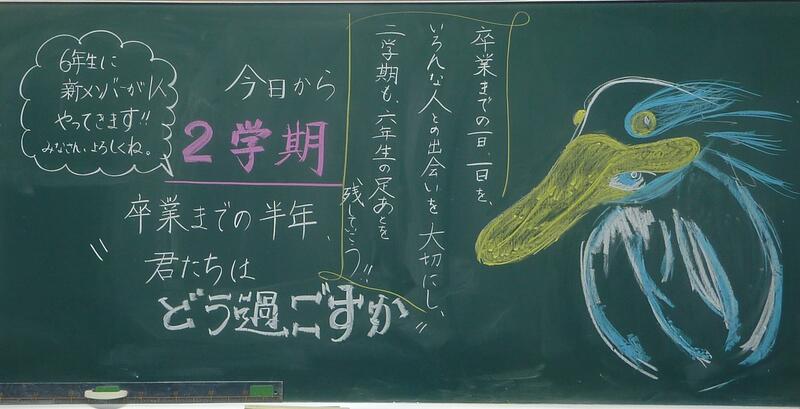 6年生に
新メンバーが1人
やってきます!!
みなさん、よろしくね。
今日から
2学期
卒業までの半年、
君たちは
どう過ごすか
卒業までの一日、一日を、
いろんな人との出会いを大切にし、
二学期も、六年生の足あとを
残していこう!!